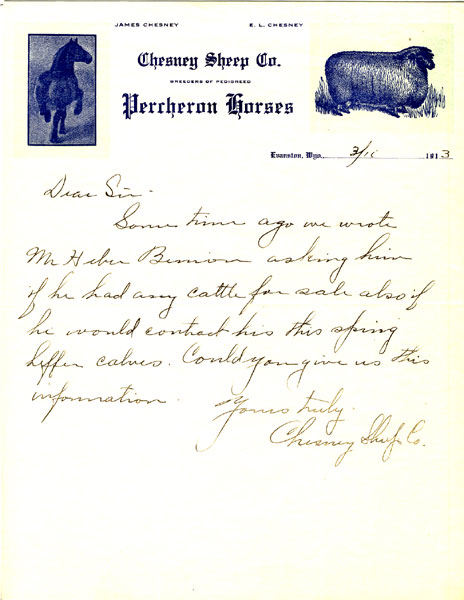 JAMES CHESNEY E. L. CHESNEY
Chesney Sheep Co.
BREEDERS OF PEDIGREED
Percheron Horses
Evanston, Wyo. 3/11 1913
Dear Sir-
Some time ago we wrote
Mr Heber Bennion asking him
if he had any cattle for sale also if
he would contract his this spring
heffer calves. Could you give us this
information.
Yours truly.
Chesney Sheep Co.